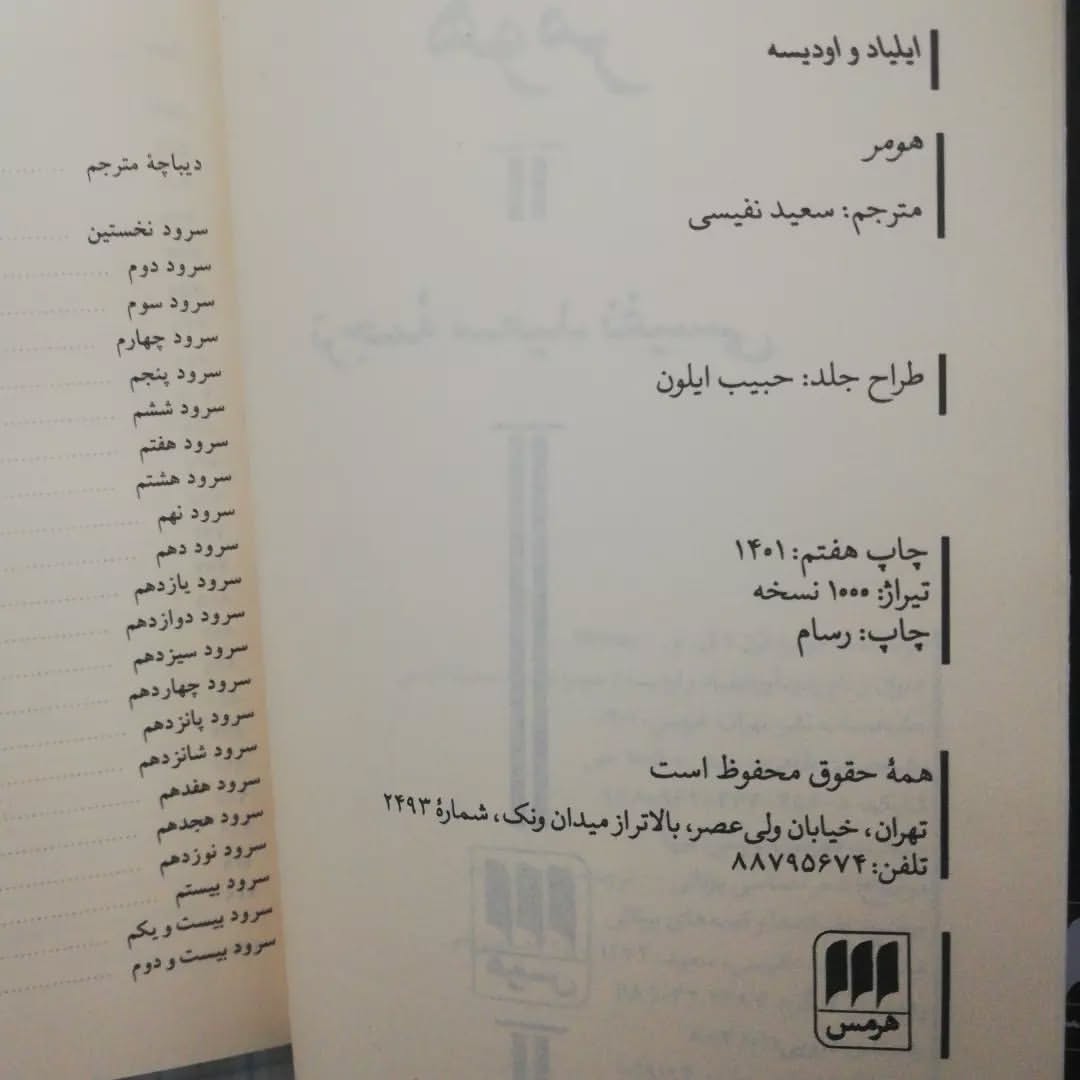 ایلیاد و اودیسه
هومر
مترجم: سعید نفیسی
طراح جلد: حبیب ایلون
چاپ هفتم: ۱۴۰۱
تیراژ: ۱۰۰۰ نسخه
چاپ: رسام
همهٔ حقوق محفوظ است
تهران، خیابان ولی‌عصر، بالاتر از میدان ونک، شمارهٔ ۲۴۹۳
تلفن: ۸۸۷۹۵۶۷۴
هرمس
دیباچهٔ مترجم
سرود نخستین
سرود دوم
سرود سوم
سرود چهارم
سرود پنجم
سرود ششم
سرود هفتم
سرود هشتم
سرود نهم
سرود دهم
سرود یازدهم
سرود دوازدهم
سرود سیزدهم
سرود چهاردهم
سرود پانزدهم
سرود شانزدهم
سرود هفدهم
سرود هجدهم
سرود نوزدهم
سرود بیستم
سرود بیست و یکم
سرود بیست و دوم